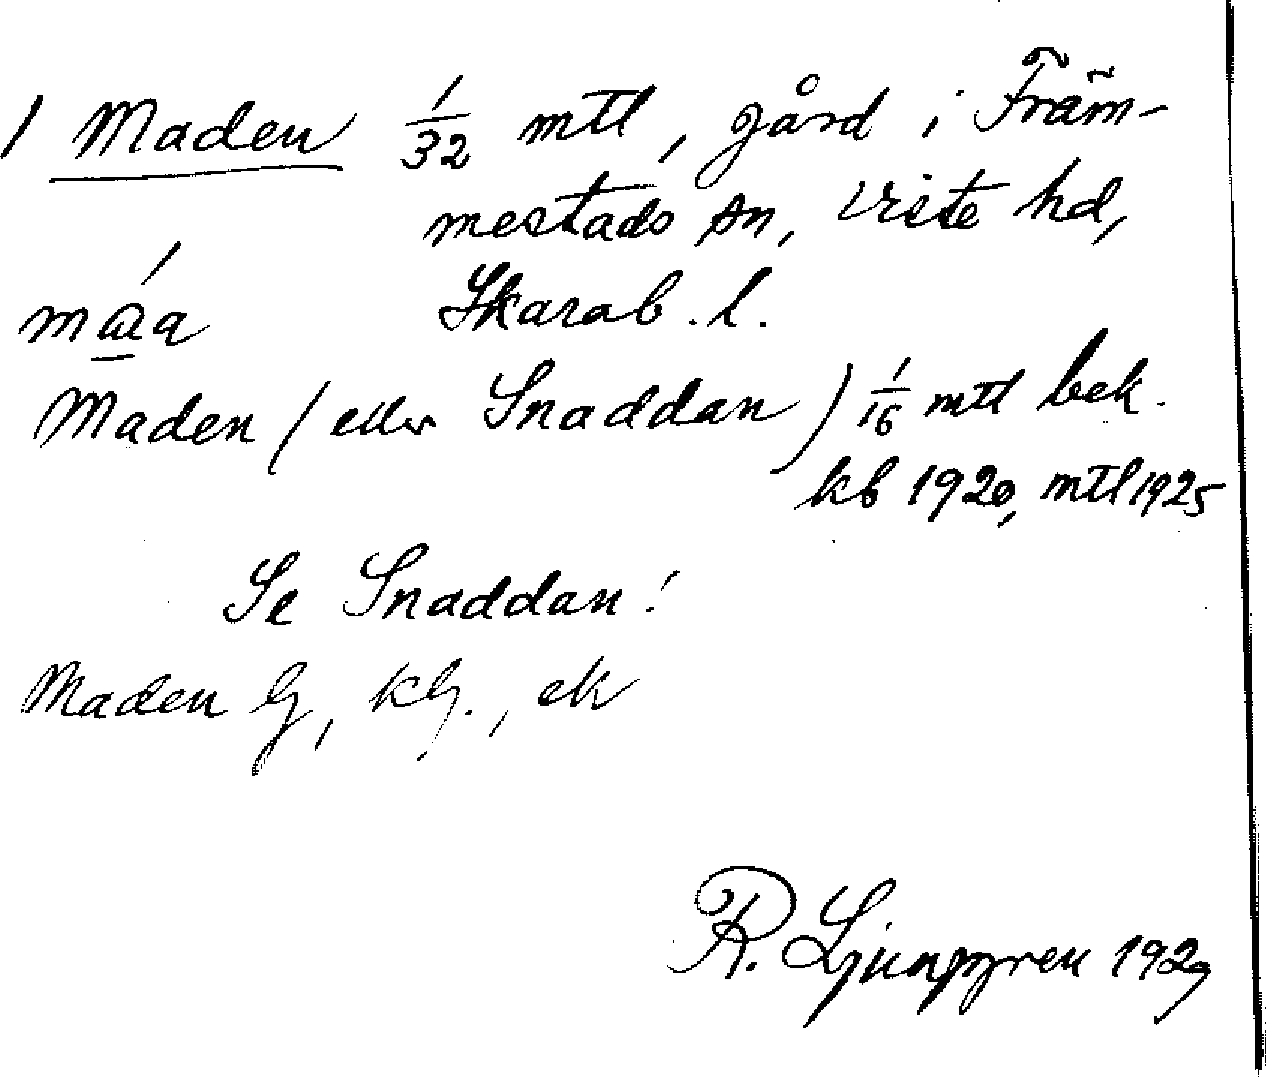 1 Maden 1/32 mtl, gård i Främ-
mestads sn, Viste hd,
Skarab. l.
Maden (eller Snaddan) 1/16 mtl bek.
kb 1920, mtl 1925
Se Snaddan!
Maden G, kG., ek
R. Ljunggren 1929